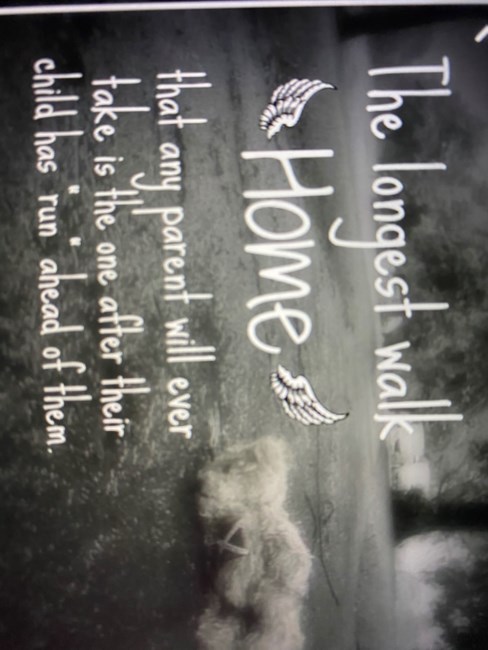 The longest walk
Home
that any parent will ever
take is the one after their
child has "run" ahead of them.